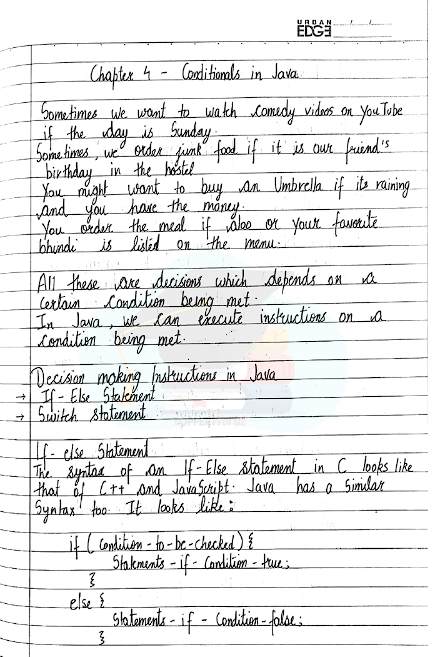 URBAN
EDGE
Chapter 4 - Conditionals in Java
Sometimes we want to watch comedy videos on YouTube
if the day is Sunday.
Sometimes, we order junk food if it is our friend's
birthday in the hostel
You might want to buy an Umbrella if its raining
and you have the money.
You order the meal if aloo or your favorite
bhindi is listed on the menu.
All these are decisions which depends on a
certain condition being met.
In Java, we can execute instructions on a
condition being met.
Decision making Instructions in Java
→ If - Else Statement
→ Switch statement
If - else Statement
The syntax of an If-Else statement in C looks like
that of C++ and JavaScript. Java has a similar
Syntax too. It looks like:
if ( condition-to-be-checked) {
Statements - if - Condition - true;
}
else {
Statements - if - Condition - false;
}